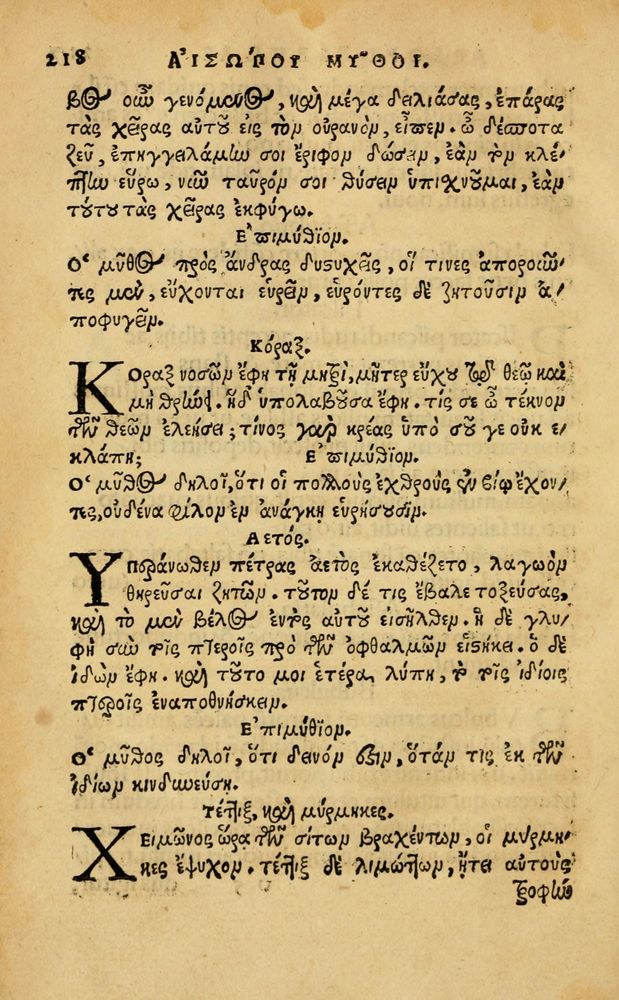 218 ΑἸΣΩ΄ΠΟΥ ΜΥ͂ΘΟΙ.
βος οὖν γενόμενος, καὶ μέγα δειλιάσας, ἐπάρας
τὰς χεῖρας αὐτοῦ εἰς τὸν οὐρανὸν, εἶπεν. ὦ δέσποτα
ζεῦ, ἐπηγγειλάμην σοι ἔριφον δώσειν, ἐὰν τὸν κλέ-
πτην εὕρω, νῦν ταῦρόν σοι θύσειν ὑπιχνοῦμαι, ἐὰν
τούτου τὰς χεῖρας ἐκφύγω.
Ἐπιμύθιον.
Ὁ μῦθος πρὸς ἄνδρας δυστυχεῖς, οἵ τινες ἀποροῦν-
τες μὲν, εὔχονται εὑρεῖν, εὑρόντες δὲ ζητοῦσιν ἀ-
ποφυγεῖν.
Κόραξ.
ΚΟραξ νοσῶν ἔφη τῇ μητρὶ, μῆτερ εὔχου τῷ θεῷ καὶ
μὴ θρήνει. ἡ δ' ὑπολαβοῦσα ἔφη. τίς σε ὦ τέκνον
τῶν θεῶν ἐλεήσει; τίνος γὰρ κρέας ὑπὸ σοῦ γε οὐκ ἐ-
κλάπη; Ἐπιμύθιον.
Ὁ μῦθος δηλοῖ, ὅτι οἱ πολλοὺς ἐχθροὺς ἐν βίῳ ἔχον-
τες, οὐδένα φίλον ἐν ἀνάγκῃ εὑρήσουσιν.
Ἀετός.
ΥΠεράνωθεν πέτρας ἀετὸς ἐκαθέζετο, λαγωὸν
θηρεῦσαι ζητῶν. τοῦτον δέ τις ἔβαλε τοξεύσας,
καὶ τὸ μὲν βέλος ἐντὸς αὐτοῦ εἰσῆλθεν. ἡ δὲ γλυ-
φὴ σὺν τοῖς πτεροῖς πρὸ τῶν ὀφθαλμῶν εἱστήκει. ὁ δὲ
ἰδὼν ἔφη. καὶ τοῦτό μοι ἑτέρα λύπη, τὸ τοῖς ἰδίοις
πτεροῖς ἐναποθνήσκειν.
Ἐπιμύθιον.
Ὁ μῦθος δηλοῖ, ὅτι δεινόν ἐστιν, ὅτάν τις ἐκ τῶν
ἰδίων κινδυνεύσῃ.
Τέττιξ, καὶ μύρμηκες.
ΧΕιμῶνος ὥρᾳ τῶν σίτων βραχέντων, οἱ μύρμη-
κες ἔψυχον. τέττιξ δὲ λιμώττων, ᾔτει αὐτοὺς
τροφὴν